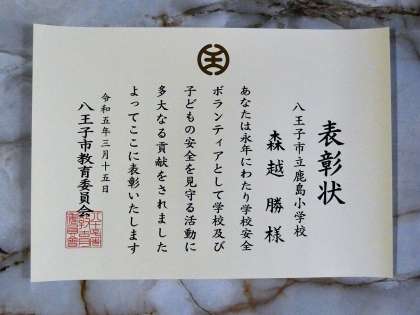 表彰状
八王子市立鹿島小学校
森越勝様
あなたは永年にわたり学校安全
ボランティアとして学校及び
子どもの安全を見守る活動に
多大なる貢献をされました
よってここに表彰いたします
令和五年三月十五日
八王子市教育委員会